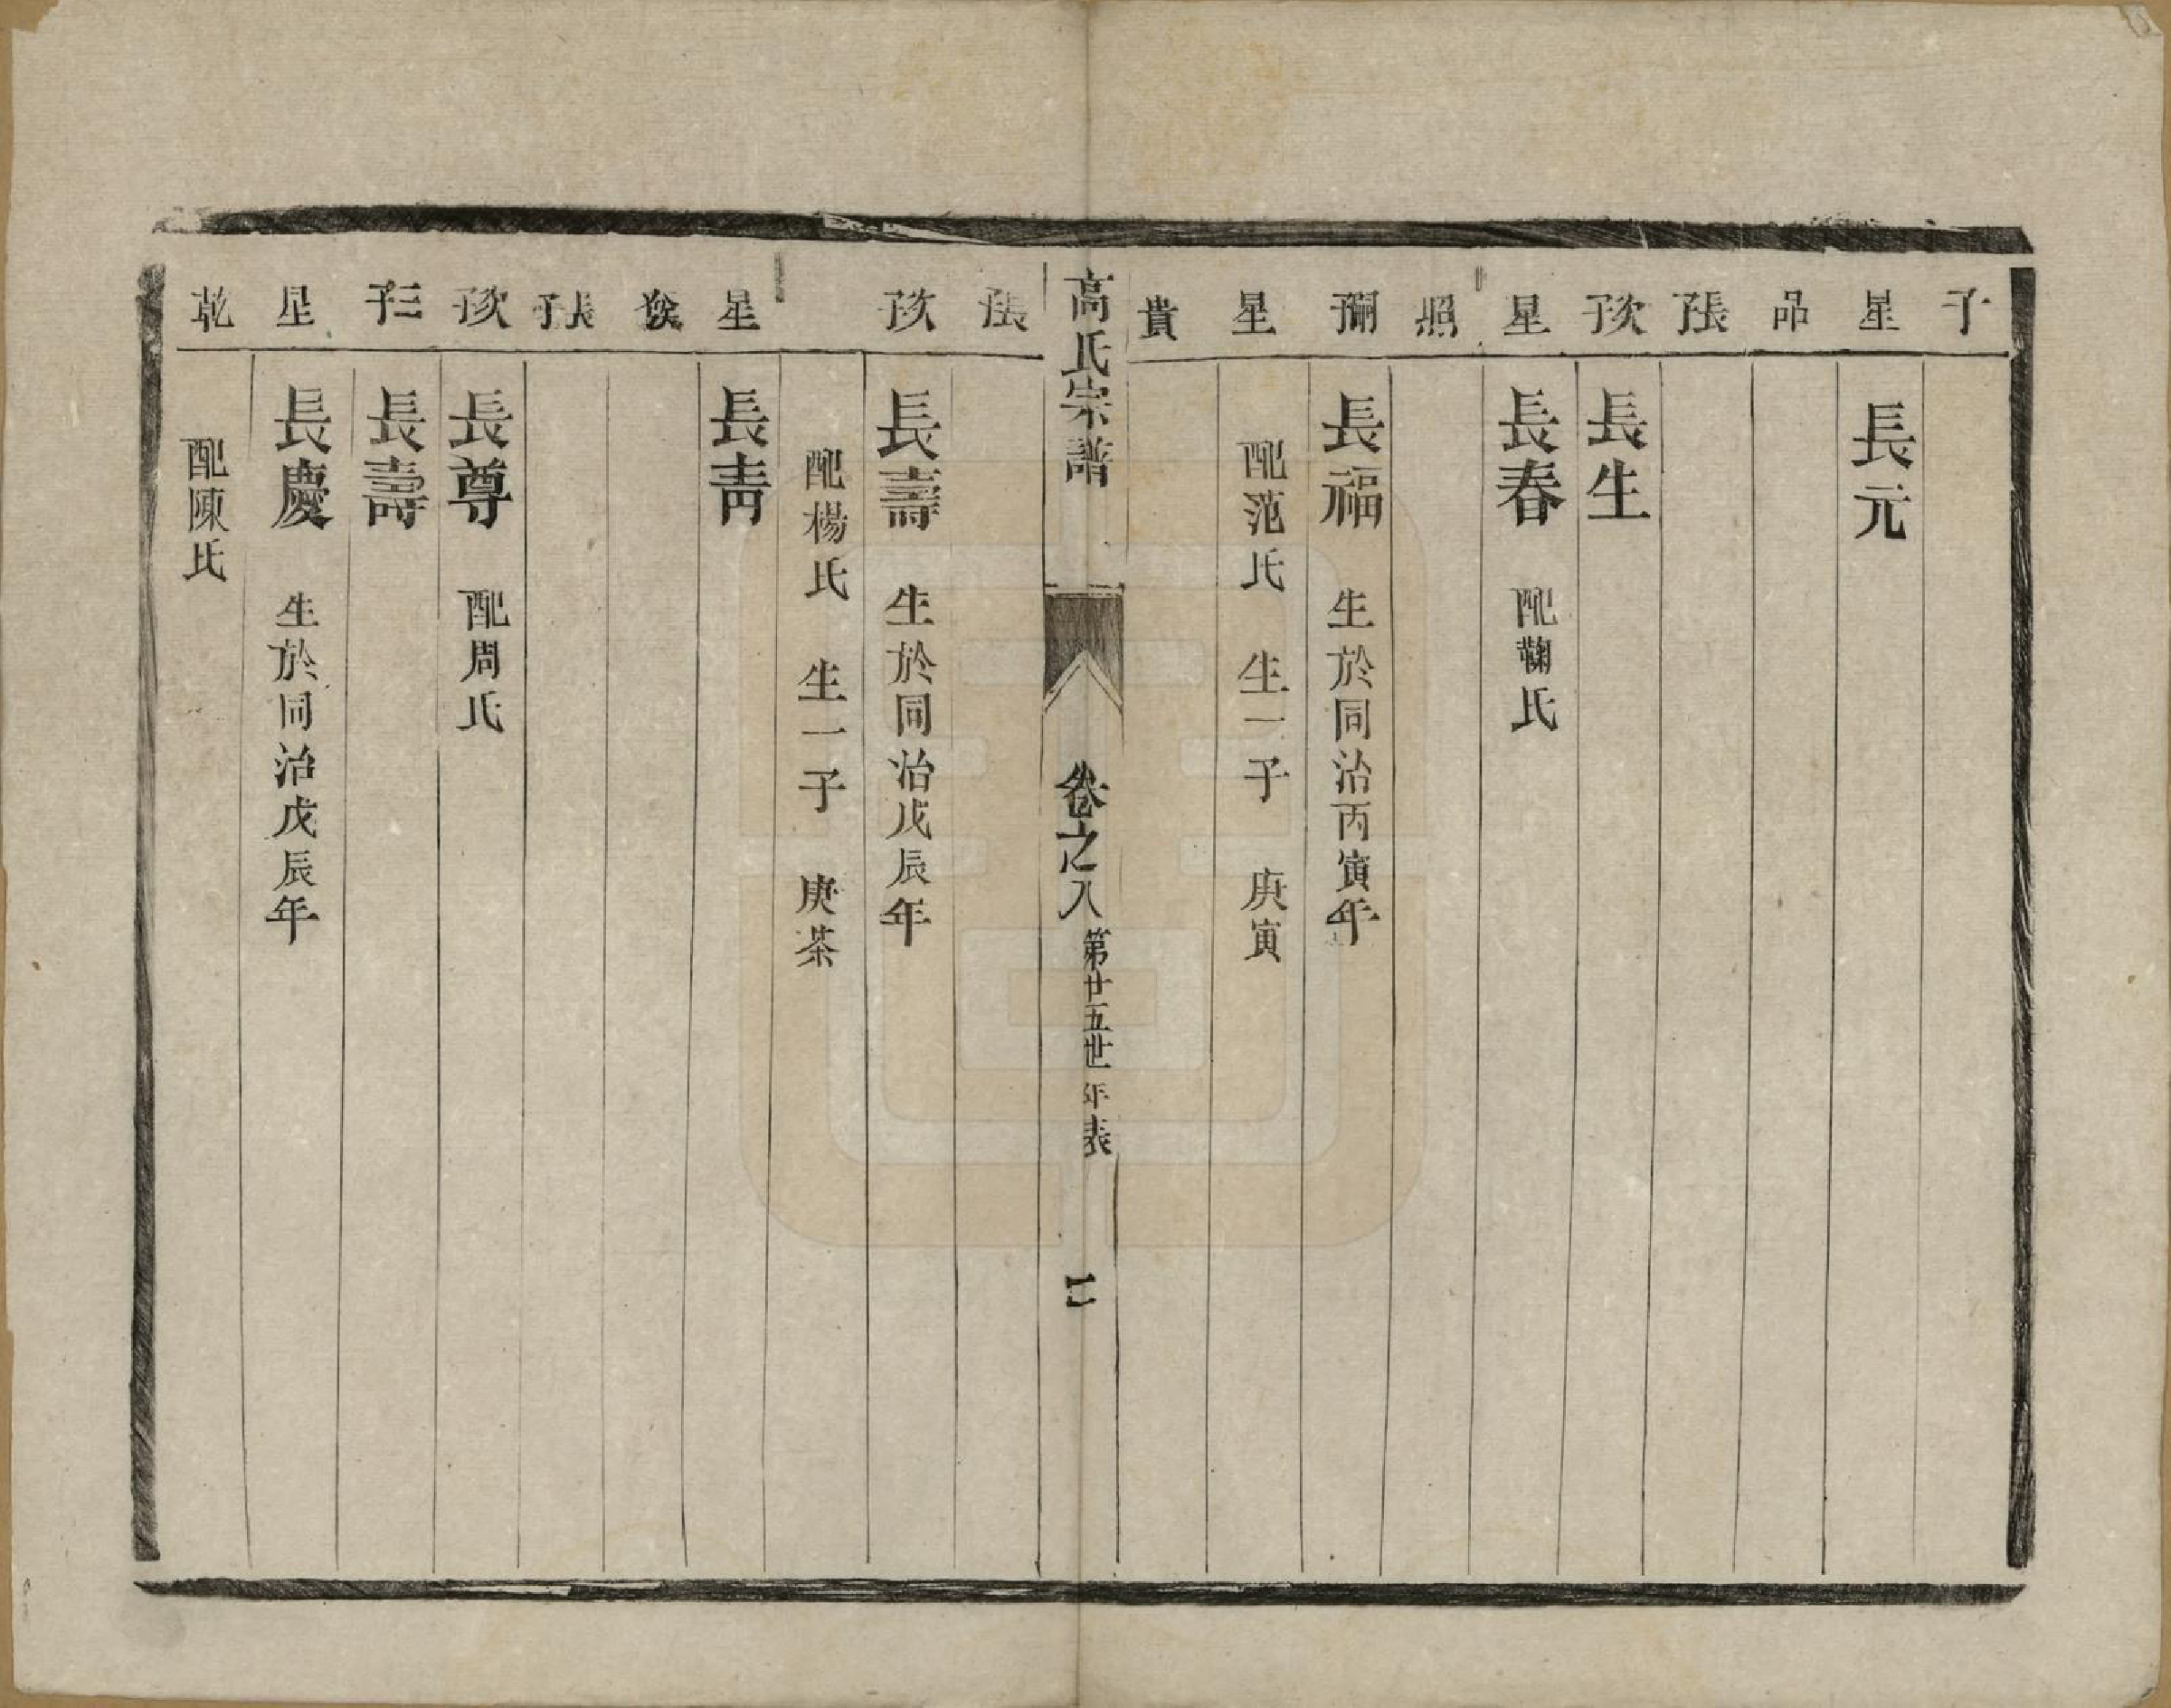 子
星 長元
品
張子
次子 長生
星 長春 配鞠氏
照
嗣子 長福 生於同治丙寅年
星 配范氏 生一子 庚寅
貴
高氏宗譜 卷之八 第廿五世年表 二
張子
次子 長壽 生於同治戊辰年
配楊氏 生一子 庚茶
星 長青
張子
次子 長尊 配周氏
三子 長壽
星 長慶 生於同治戊辰年
乾 配陳氏